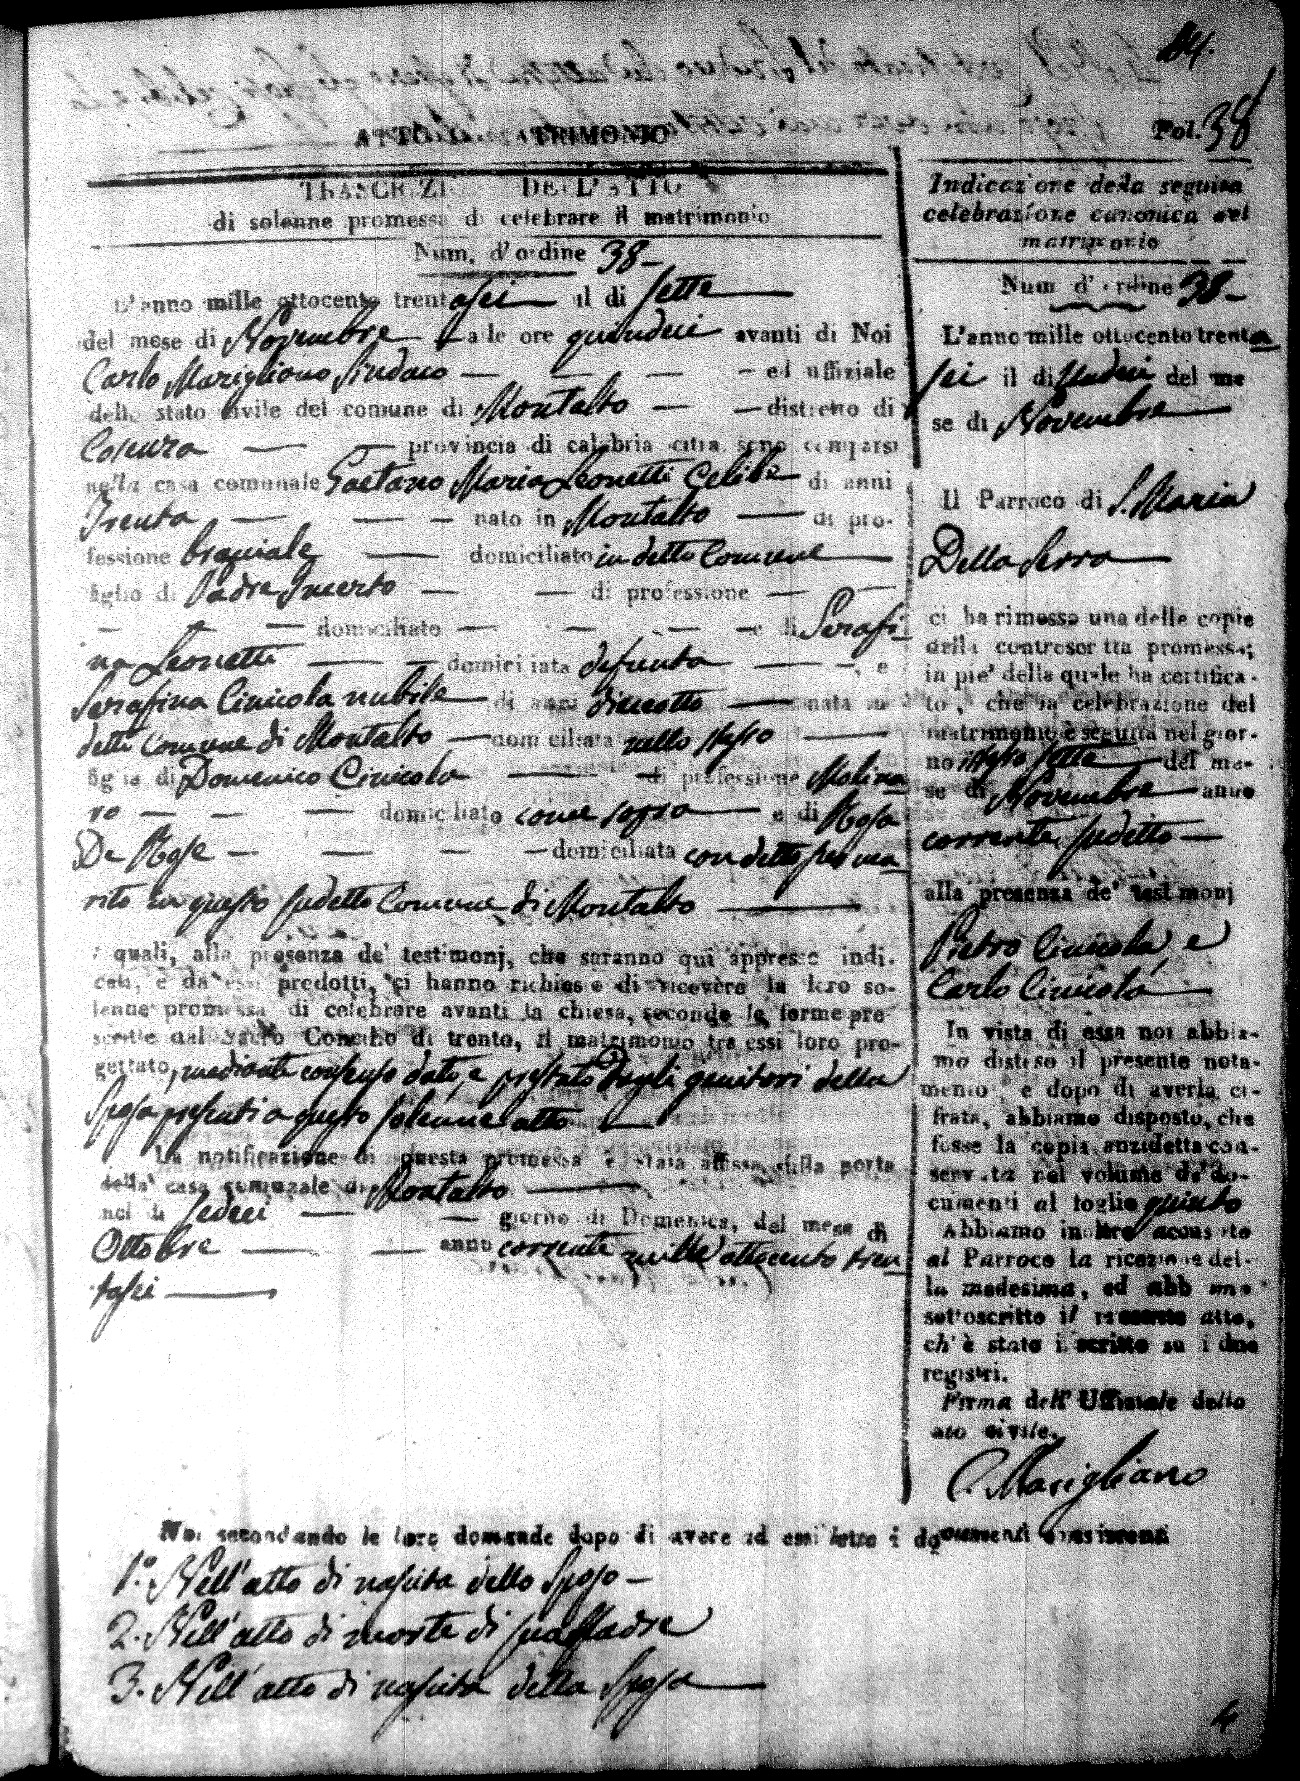 84.
Fol. 38
ATTO MATRIMONIO
TRASCRIZI DELL'ATTO
di solenne promessa di celebrare il matrimonio
Num. d'ordine 38
L'anno mille ottocento trentasei il di sette
del mese di Novembre alle ore quindeci avanti di Noi
Carlo Marigliano Sindaco ed uffiziale
dello stato civile del comune di Montalto distretto di
Cosenza provincia di calabria citra sono comparsi
nella casa comunale Gaetano Maria Leonetti Celibe di anni
Trenta nato in Montalto di pro-
fessione braciale domiciliato in detto Comune
figlio di Padre Incerto di professione
domiciliato e di Serafi
na Leonetti domiciliata defunta , e
Serafina Cinicola nubile di anni dieciotto nata in
detto Comune di Montalto domiciliata nello stesso
figlia di Domenico Cinicola di professione Molina
ro domiciliato come sopra e di Rosa
De Rose domiciliata con detto suo ma
rito in questo sudetto Comune di Montalto
i quali, alla presenza de' testimonj, che saranno qui appresso indi-
cati, e da essi predotti, ci hanno richiesto di ricevere la loro so-
lenne promessa di celebrare avanti la chiesa, secondo le forme pre
scritte dal Sacro Concilio di trento, il matrimonio tra essi loro pro-
gettato, mediante consenso dato, e prestato Dagli genitori della
Sposa presenti a questo solenne atto
La notificazione di questa promessa è stata affissa sulla porta
della casa comunale di Montalto
nel di sedeci giorno di Domenica, del mese di
Ottobre anno corrente mille ottocento tren
tasei
Indicazione della seguita
celebrazione canonica del
matrimonio
Num d'ordine 38
L'anno mille ottocento trenta
sei il di undeci del me
se di Novembre
Il Parroco di S. Maria
Della Serra
ci ha rimessa una delle copie
della controscritta promessa;
in pie' della quale ha certifica-
to, che la celebrazione del
matrimonio è seguita nel gior-
no istesso sette del me-
se di Novembre anno
corrente sudetto
alla presenza de' testimonj
Pietro Cinicola e
Carlo Cinicola
In vista di essa noi abbia-
mo disteso il presente nota-
mento, e dopo di averla ci-
frata, abbiamo disposto, che
fosse la copia anzidetta con-
servata nel volume de' do-
cumenti al foglio quinto
Abbiamo inoltre accusato
al Parroco la ricezione del-
la medesima, ed abbiamo
sottoscritto il presente atto,
ch'è stato iscritto su i due
registri.
Firma dell'Uffiziale dello
ato civile.
C. Marigliano
Noi secondando le loro domande dopo di avere ad essi letto i documenti consistenti
1.º Nell'atto di nascita dello Sposo
2. Nell'atto di morte di sua Madre
3. Nell'atto di nascita della Sposa